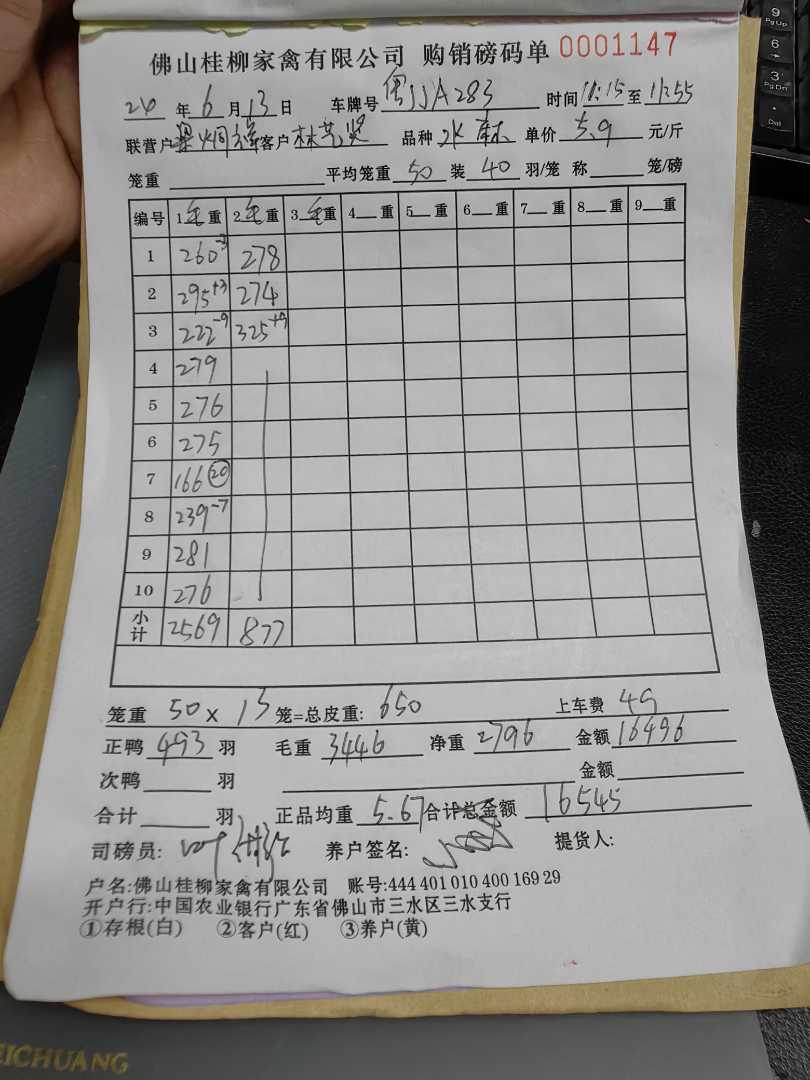 佛山桂柳家禽有限公司 购销磅码单 0001147
24 年 6 月 13 日 车牌号 JJA283 时间 11:15 至 11:55
联营户 客户 林 品种 单价 5.9 元/斤
笼重 平均笼重 50 装 40 羽/笼 称 笼/磅
编号 1 毛 重 2 毛 重 3 毛 重 4 重 5 重 6 重 7 重 8 重 9 重
1 260-3 278
2 295+3 274
3 222-9 325+9
4 279
5 276
6 275
7 166 20
8 239-7
9 281
10 276
小计 2569 877
笼重 50 x 13 笼=总皮重: 650 上车费 49
正鸭 493 羽 毛重 3446 净重 2796 金额 16496
次鸭 羽 金额
合计 羽 正品均重 5.67 合计总金额 16545
司磅员: 养户签名: 提货人:
户名:佛山桂柳家禽有限公司 账号:444 401 010 400 169 29
开户行:中国农业银行广东省佛山市三水区三水支行
①存根(白) ②客户(红) ③养户(黄)
EICHUANG
9 PgUp
6
3 PgDn
. Del